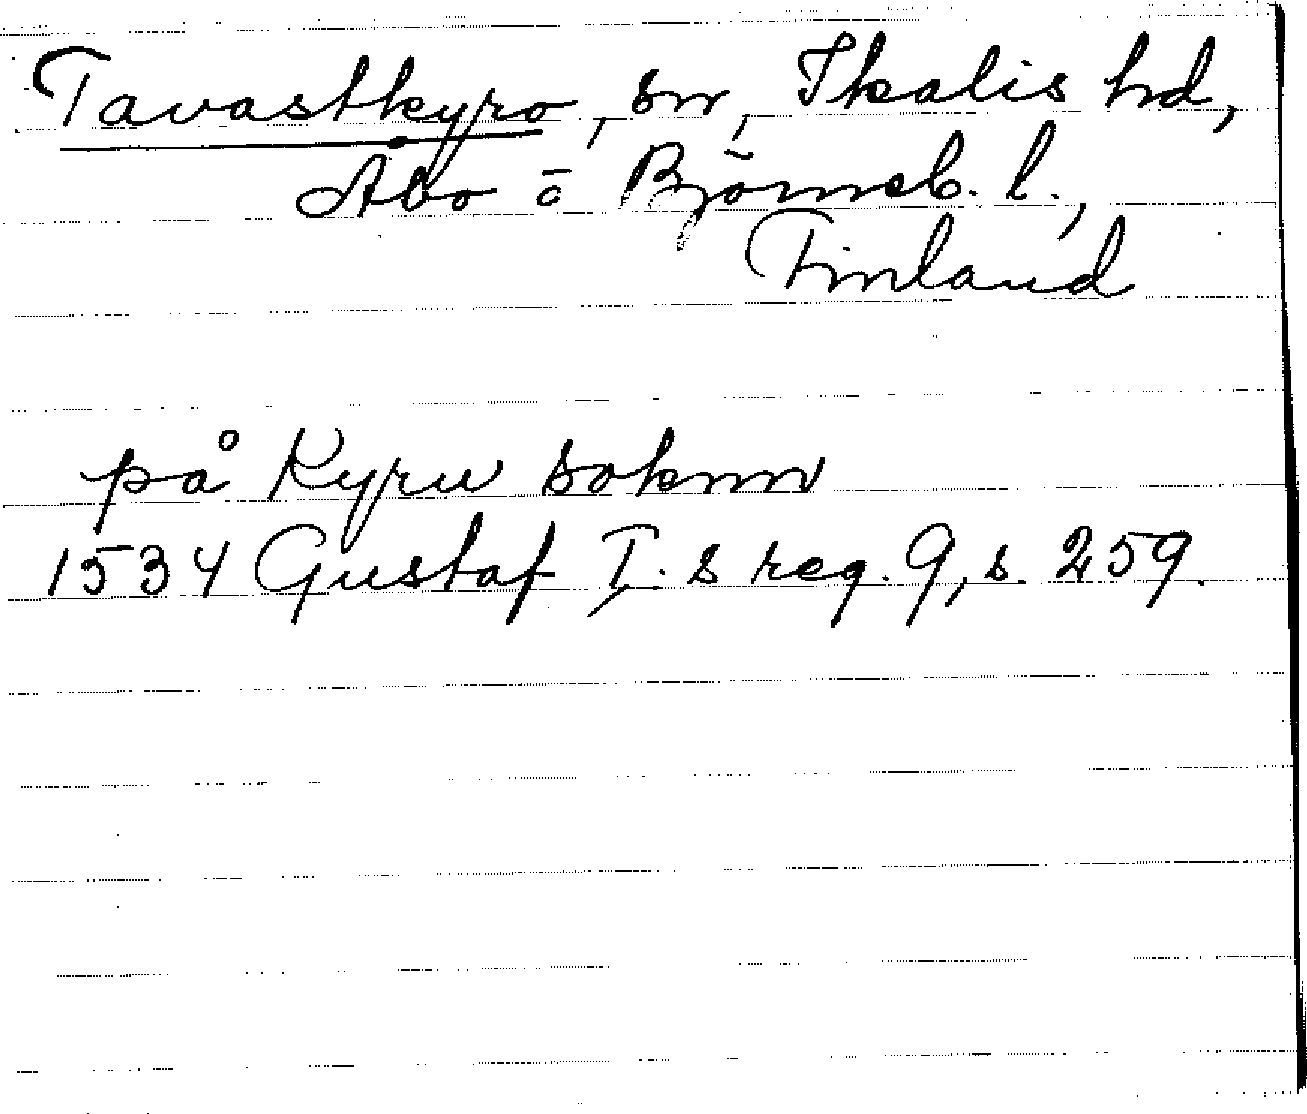 Tavastkyro, sn, Ikalis hd,
Åbo o Björneb. l.,
Finland
på Kyru soknn
1534 Gustaf I. s reg. 9, s. 259.